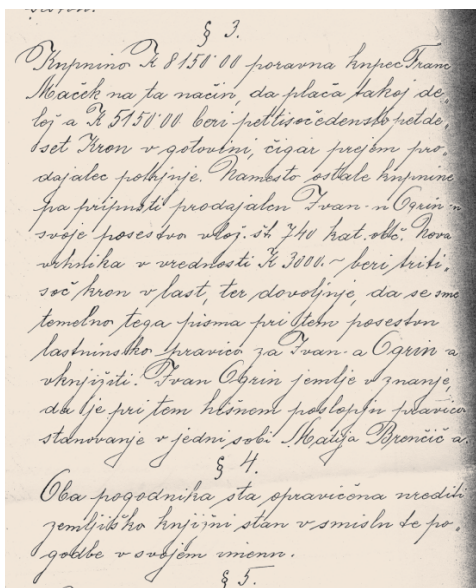 § 3.
Kupnino K 8150·00 poravna kupec Franc
Maček na ta način, da plača takoj de-
loj a K 5150·00 beri pettisočedenstopetde-
set Kron v gotovini, čigar prejem pro-
dajalec potrjuje. Namesto ostale kupnine
pa pripusti prodajalcu Ivan-u Ogrin-u
svoje posestvo vlož. št. 740 kat. obč. Nova
vrhnika v vrednosti K 3000.~ beri triti-
soč kron v last, ter dovoljuje, da se sme
temeljno tega pisma pri tem posestvu
lastninsko pravico za Ivan-a Ogrin-a
vknjižiti. Ivan Ogrin jemlje v znanje,
da je pri tem hišnem poslopju pravica
stanovanje v jedni sobi Matija Brenčič a.
§ 4.
Oba pogodnika sta opravičena urediti
zemljiško knjižni stan v smislu te po-
godbe v svojem imenu.
§ 5.